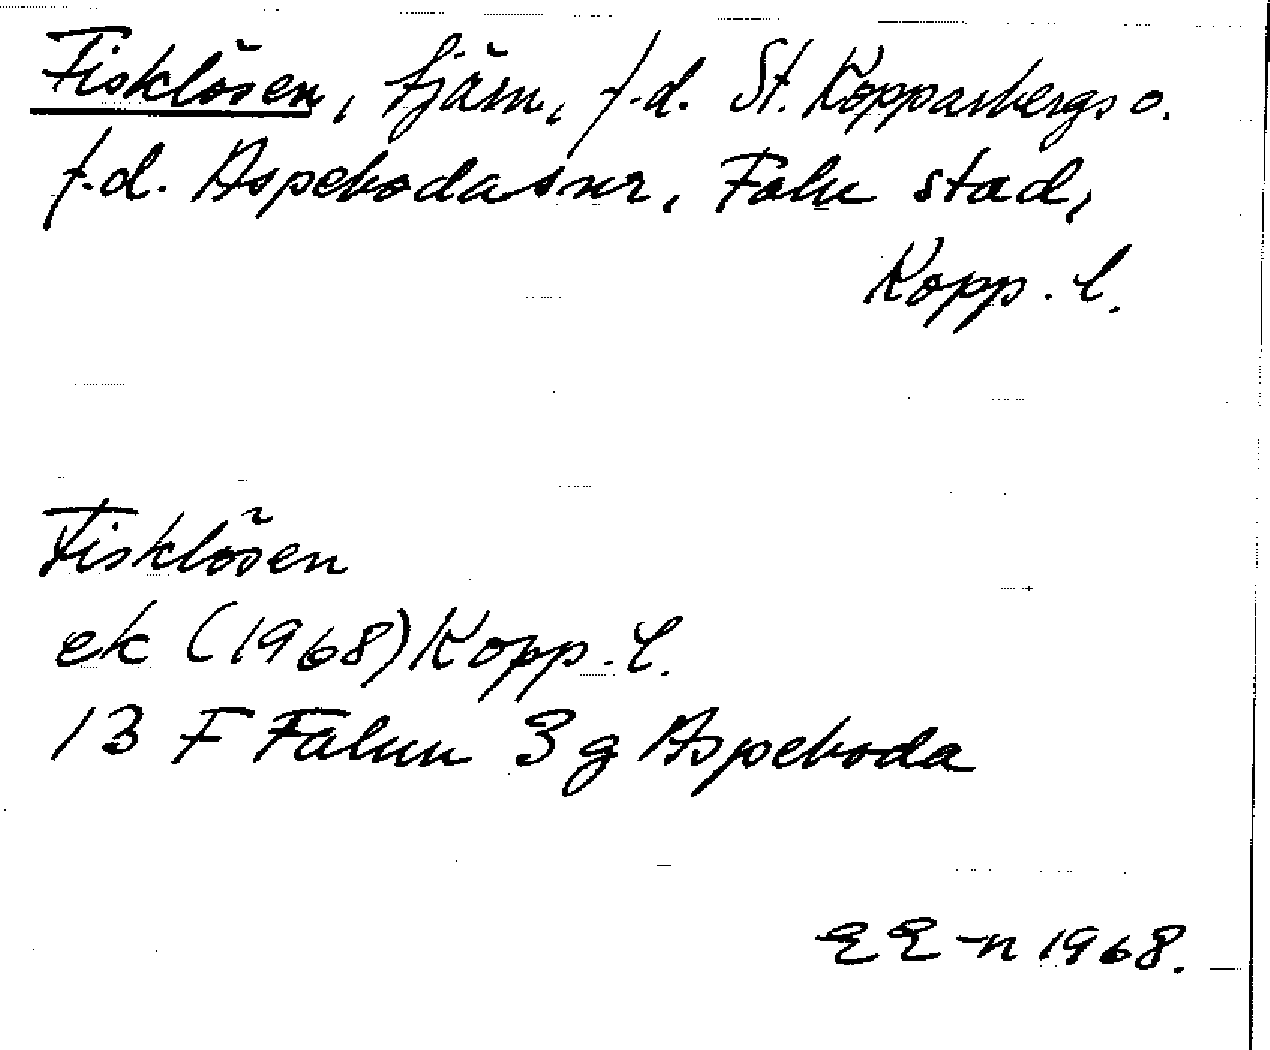 Fisklösen, tjärn, f.d. St. Kopparbergs o.
f.d. Aspeboda snr, Falu stad,
Kopp. l.
Fisklösen
ek (1968) Kopp. l.
13 F Falun 3g Aspeboda
EE-n 1968.